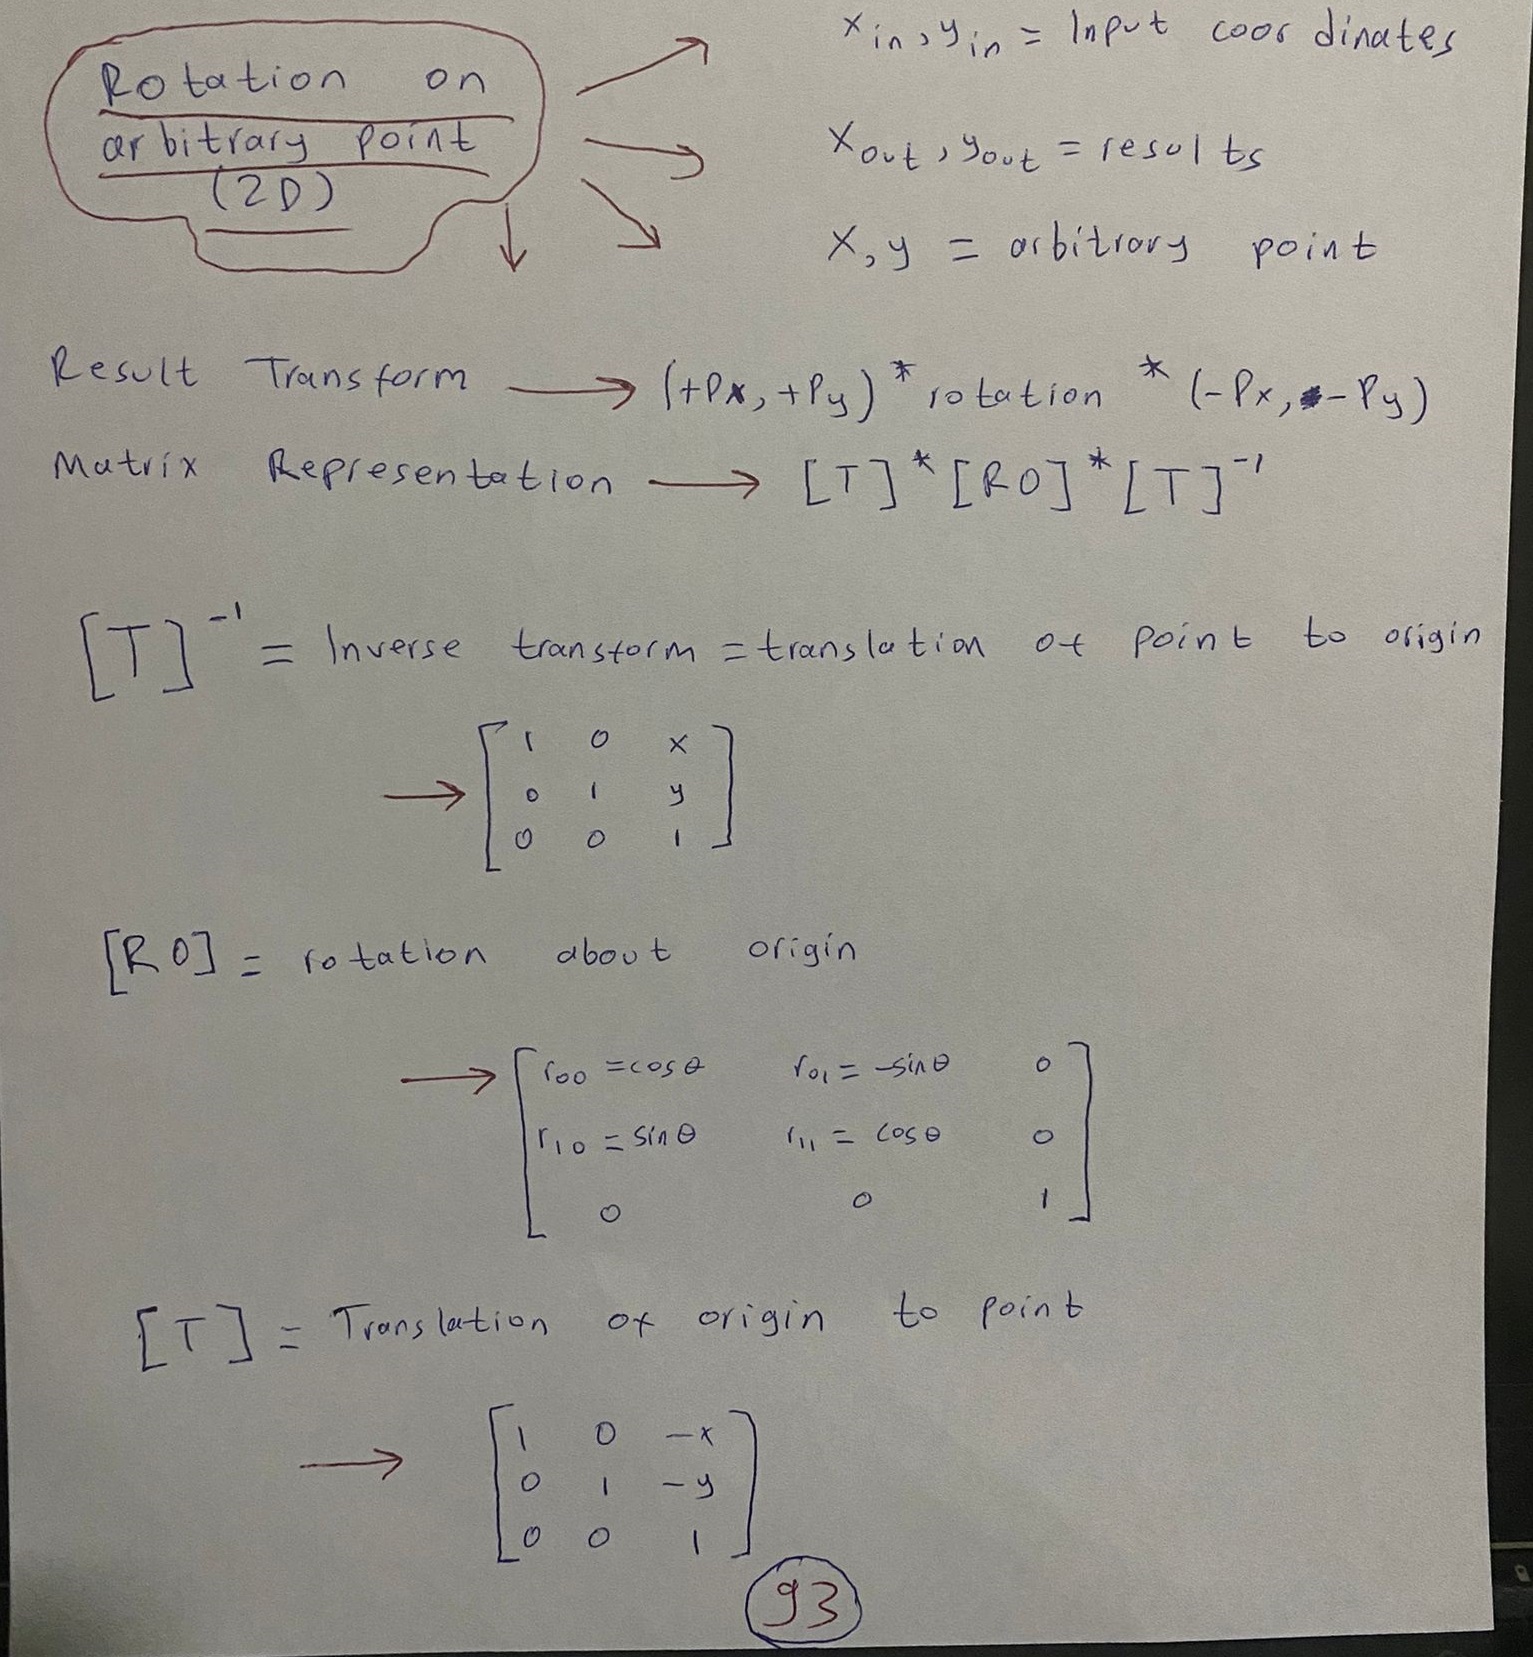 Rotation on
arbitrary point
(2D)
xin, yin = Input coordinates
xout, yout = results
x, y = arbitrary point
Result Transform → (+Px, +Py) * rotation * (-Px, -Py)
Matrix Representation → [T] * [RO] * [T]⁻¹
[T]⁻¹ = Inverse transform = translation of point to origin
→ [1 0 x
0 1 y
0 0 1]
[RO] = rotation about origin
→ [r00 = cosθ r01 = -sinθ 0
r10 = sinθ r11 = cosθ 0
0 0 1]
[T] = Translation of origin to point
→ [1 0 -x
0 1 -y
0 0 1]
93